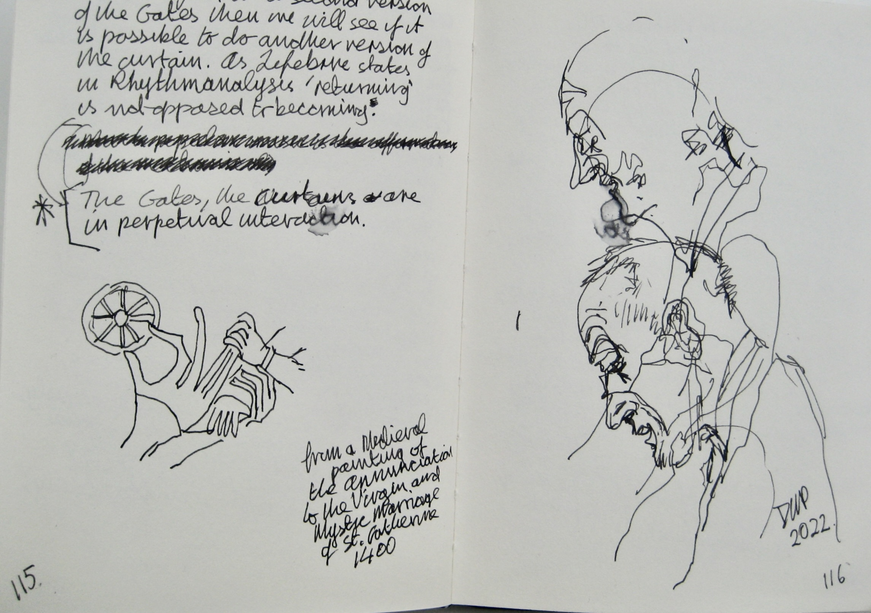 second version
of the Gates then we will see if it
is possible to do another version of
the curtain. As Lefebvre states
in Rhythmanalysis 'returning'
is not opposed to becoming'.
The Gates, the curtains are
in perpetual interaction.
from a Medieval
painting of
the Annunciation
to the Virgin and
Mystic Marriage
of St. Catherine
1400
115.
DWP
2022.
116